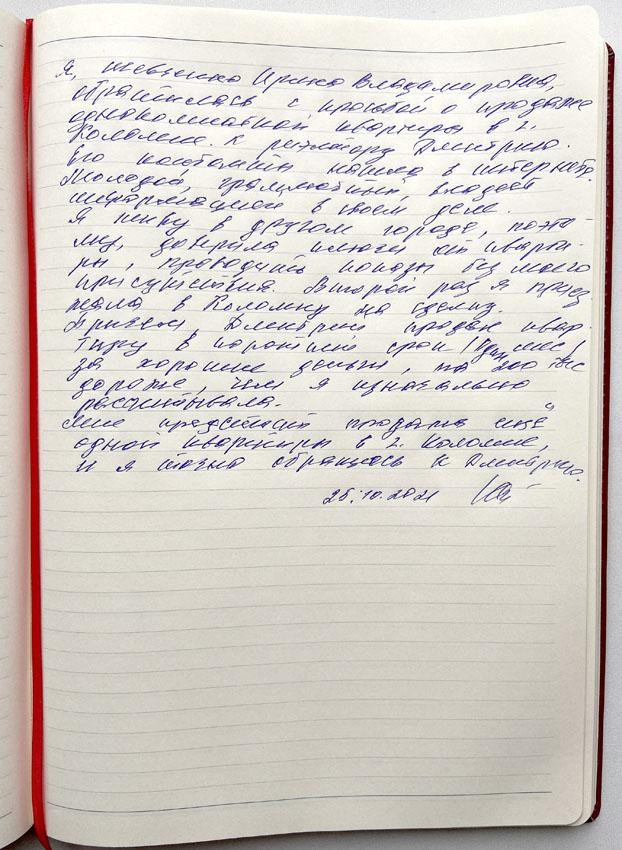 Я, Шевченко Ирина Владимировна,
обратилась с просьбой о продаже
однокомнатной квартиры в г.
Коломне. к риэлтору Дмитрию.
Его контакты нашла в интернете.
Молодой, грамотный, владеет
информацией в своем деле.
Я живу в другом городе, поэто-
му, доверила ключи от кварти-
ры, проводить показы без моего
присутствия. Второй раз я приез-
жала в Коломну на сделку.
Причем, Дмитрий продал квар-
тиру в короткий срок (один мес)
за хорошие деньги, на 200 тыс
дороже, чем я изначально
рассчитывала.
Мне предстоит продажа ещё
одной квартиры в г. Коломне,
и я точно обращусь к Дмитрию.
25.10.2021